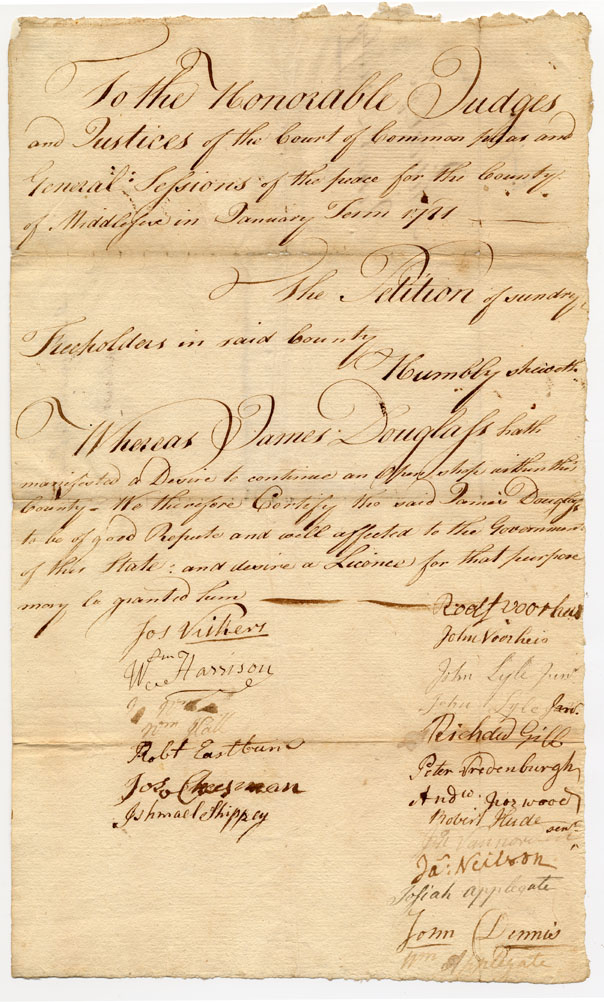 To the Honorable Judges
and Justices of the Court of Common pleas and
General: Sessions of the peace for the County
of Middlesex in January Term
The Petition of sundry
Freeholders in said County
Humbly sheweth
Whereas James Douglass hath
manifested a Desire to continue an Open shop within this
County - We therefore Certify the said James Douglass
to be of good Repute and well affected to the Government
of this State: and desire a Licence for that purpose
may be granted him
Jos Vickers
Wm Harrison
Wm Hall
Robt Eastburn
Jos Cheesman
Ishmael Shippey
Voorhees
John Voorheis
John Lyle Junr.
John Lyle
Richard Gill
Peter Vredenburgh
Andw.
Robert Hude
senr
Ja: Neilson
Josiah Applegate
John Dennis
Wm Applegate